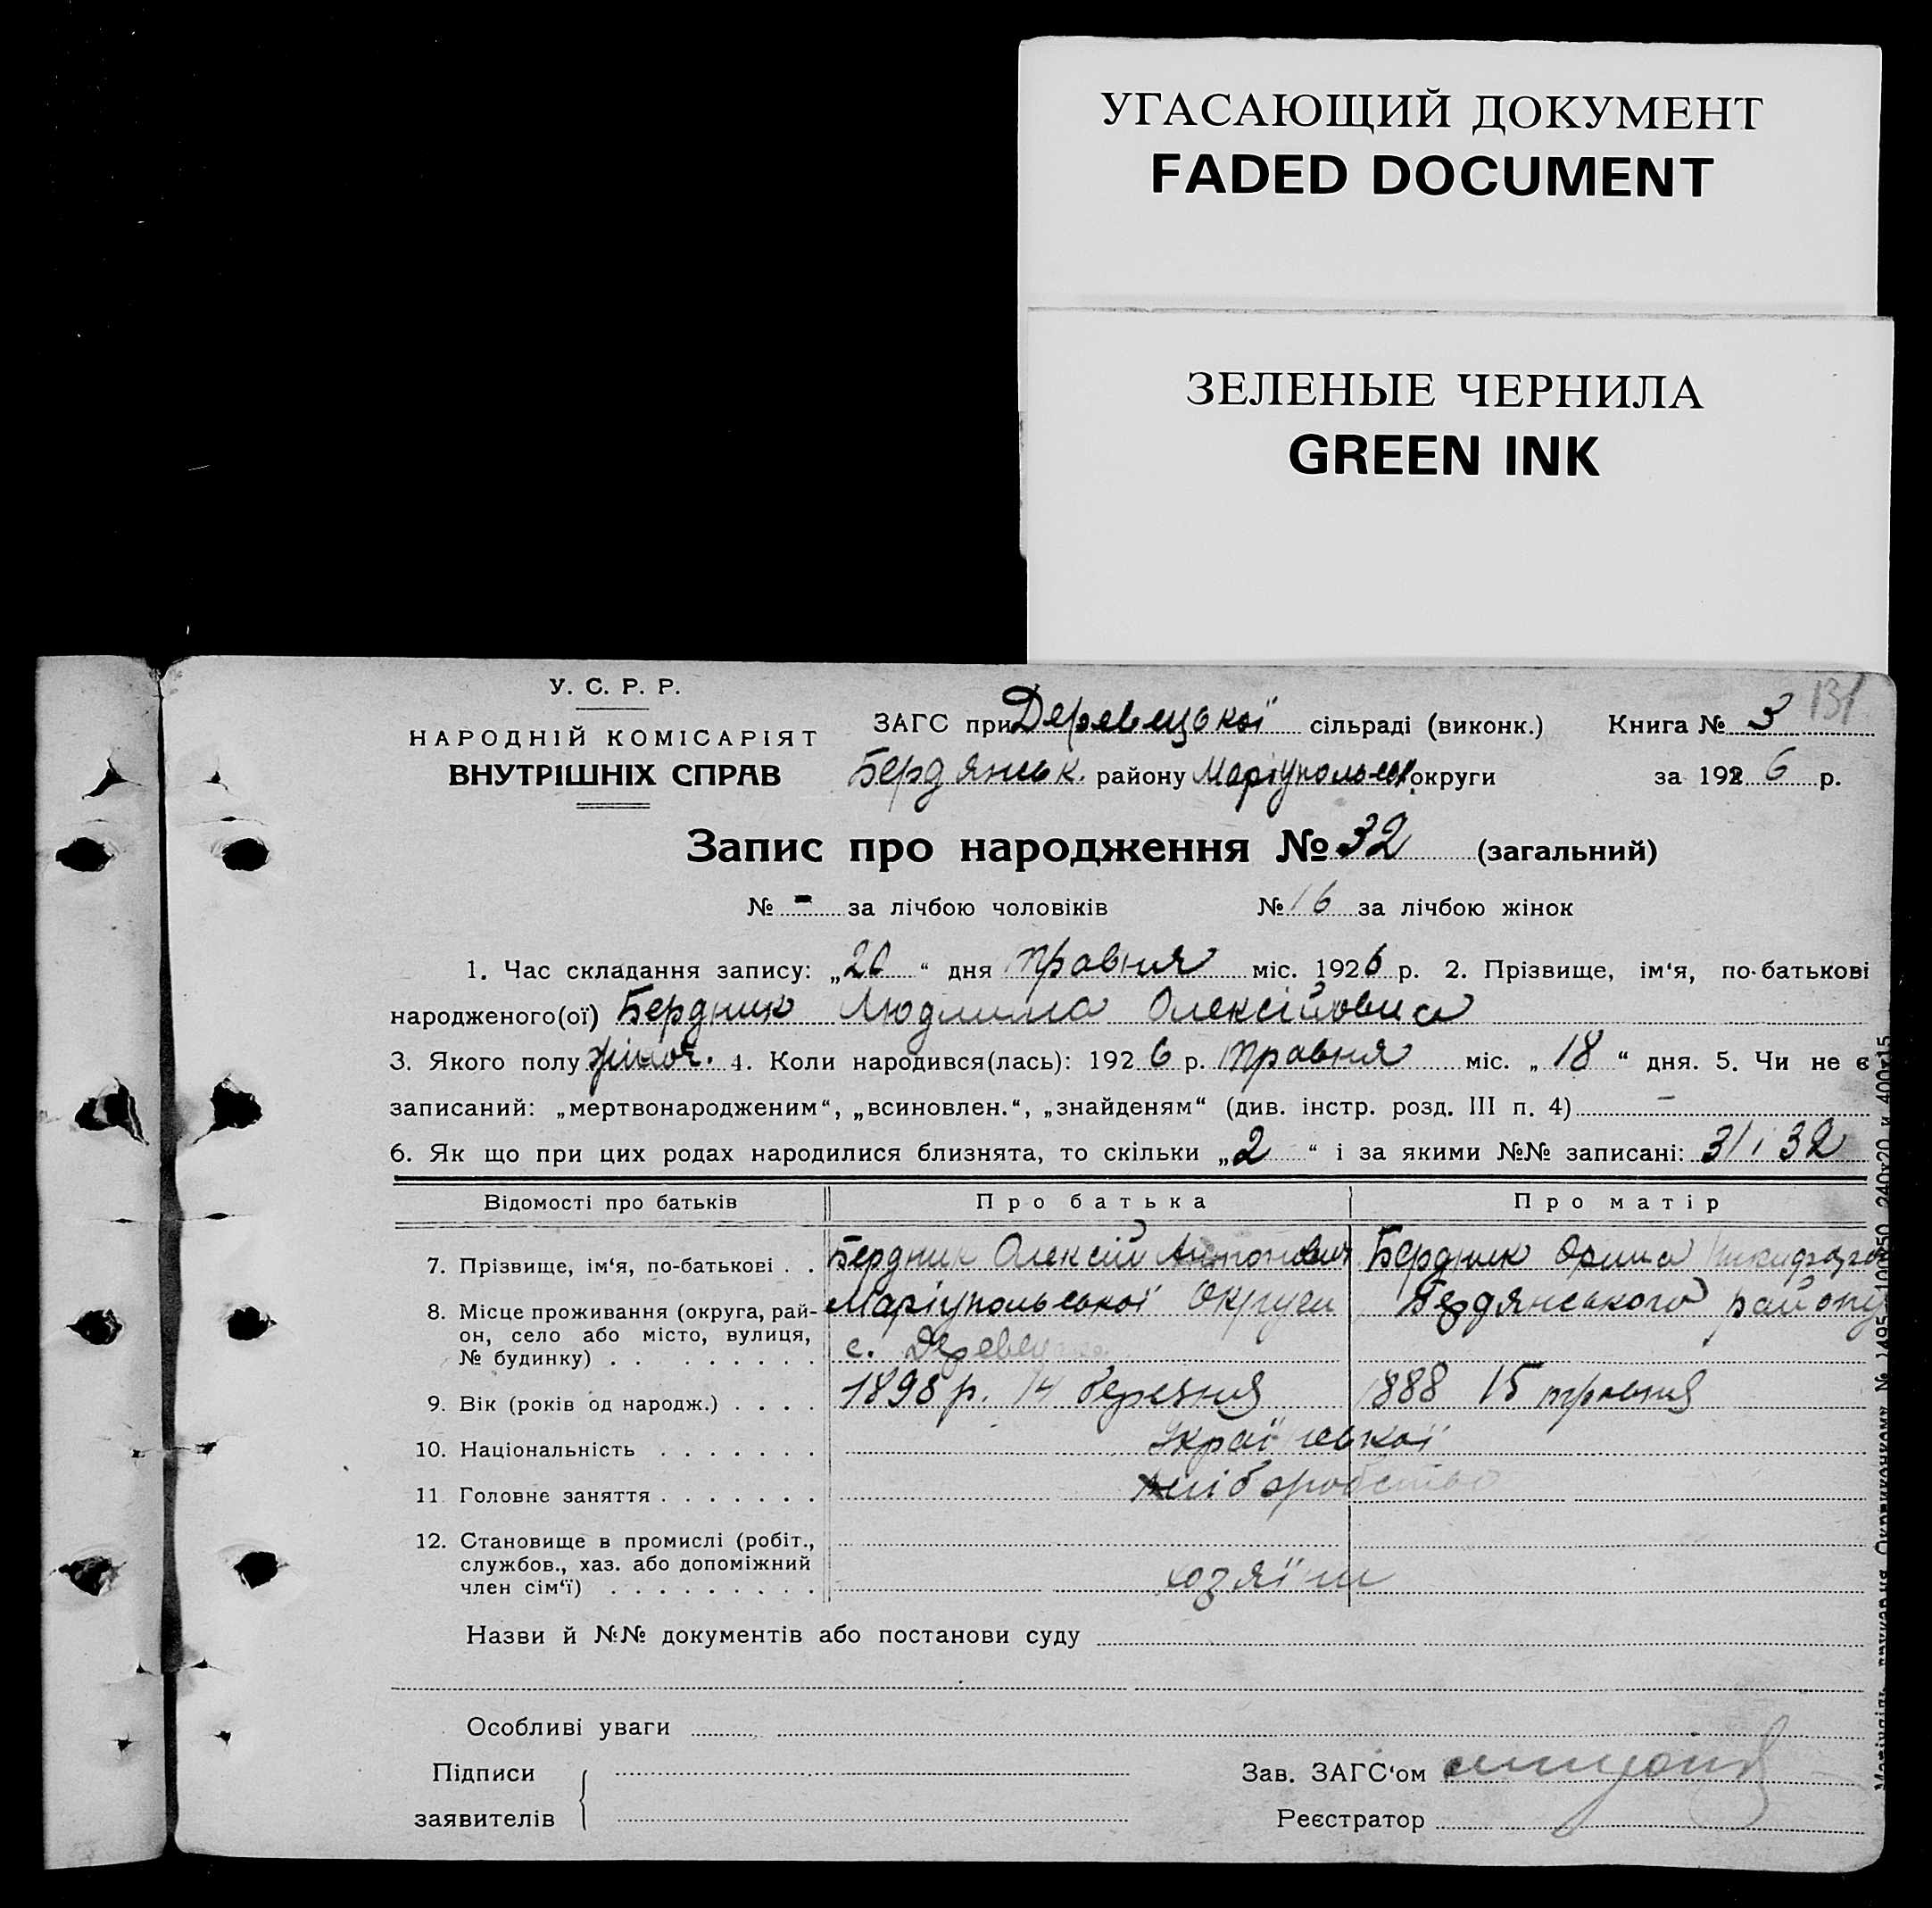 УГАСАЮЩИЙ ДОКУМЕНТ
FADED DOCUMENT
ЗЕЛЕНЫЕ ЧЕРНИЛА
GREEN INK
131
У. С. Р. Р.
НАРОДНІЙ КОМІСАРІЯТ
ВНУТРІШНІХ СПРАВ
ЗАГС при Деревецької сільраді (виконк.) Книга № 3
Бердянськ. району Маріупольськ округи за 192 6 р.
Запис про народження № 32 (загальний)
№ - за лічбою чоловіків № 16 за лічбою жінок
1. Час складання запису: „20“ дня травня міс. 1926 р. 2. Прізвище, ім‘я, по-батькові
народженого(ої) Бердник Людмила Олексійовна
3. Якого полу жіноч. 4. Коли народився(лась): 192 6 р. травня міс. „ 18 “ дня. 5. Чи не є
записаний: „мертвонародженим“, „всиновлен.“, „знайденям“ (див. інстр. розд. III п. 4) –
6. Як що при цих родах народилися близнята, то скільки „2“ і за якими №№ записані: 31 і 32
Відомості про батьків Про батька Про матір
7. Прізвище, ім‘я, по-батькові . . Бердник Олексій Антонович Бердник Орина
8. Місце проживання (округа, рай- Маріупольської Округи Бердянського району
он, село або місто, вулиця, с.
№ будинку) . . . . . . . . .
9. Вік (років од народж.) . . . . 1898 р. 14 березня 1888 15 травня
10. Національність . . . . . . . Української
11 Головне заняття . . . . . . . хліборобство
12. Становище в промислі (робіт.,
службов., хаз. або допоміжний
член сім‘ї) . . . . . . . . . хозяїн
Назви й №№ документів або постанови суду
Особливі уваги
Підписи
заявителів
Зав. ЗАГС‘ом
Реєстратор